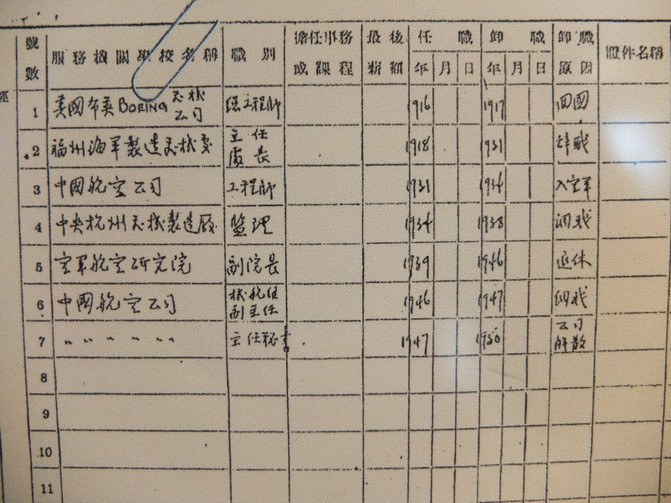 號數 服務機關學校名稱 職別 擔任事務或課程 最後薪額 任職 年月日 卸職 年月日 卸職原因 證件名稱
1 美國 BOEING 飛機公司 總工程師 1916 1917 回國
2 福州海軍製造飛機處 主任 處長 1918 1931 辭職
3 中國航空公司 工程師 1931 1934 入空軍
4 中央杭州飛機製造廠 監理 1934 1938 調職
5 空軍航空研究院 副院長 1939 1946 退休
6 中國航空公司 副主任 1946 1947 調職
7 〃 〃 〃 〃 〃 〃 主任秘書 1947 1950 公司解散
8
9
10
11